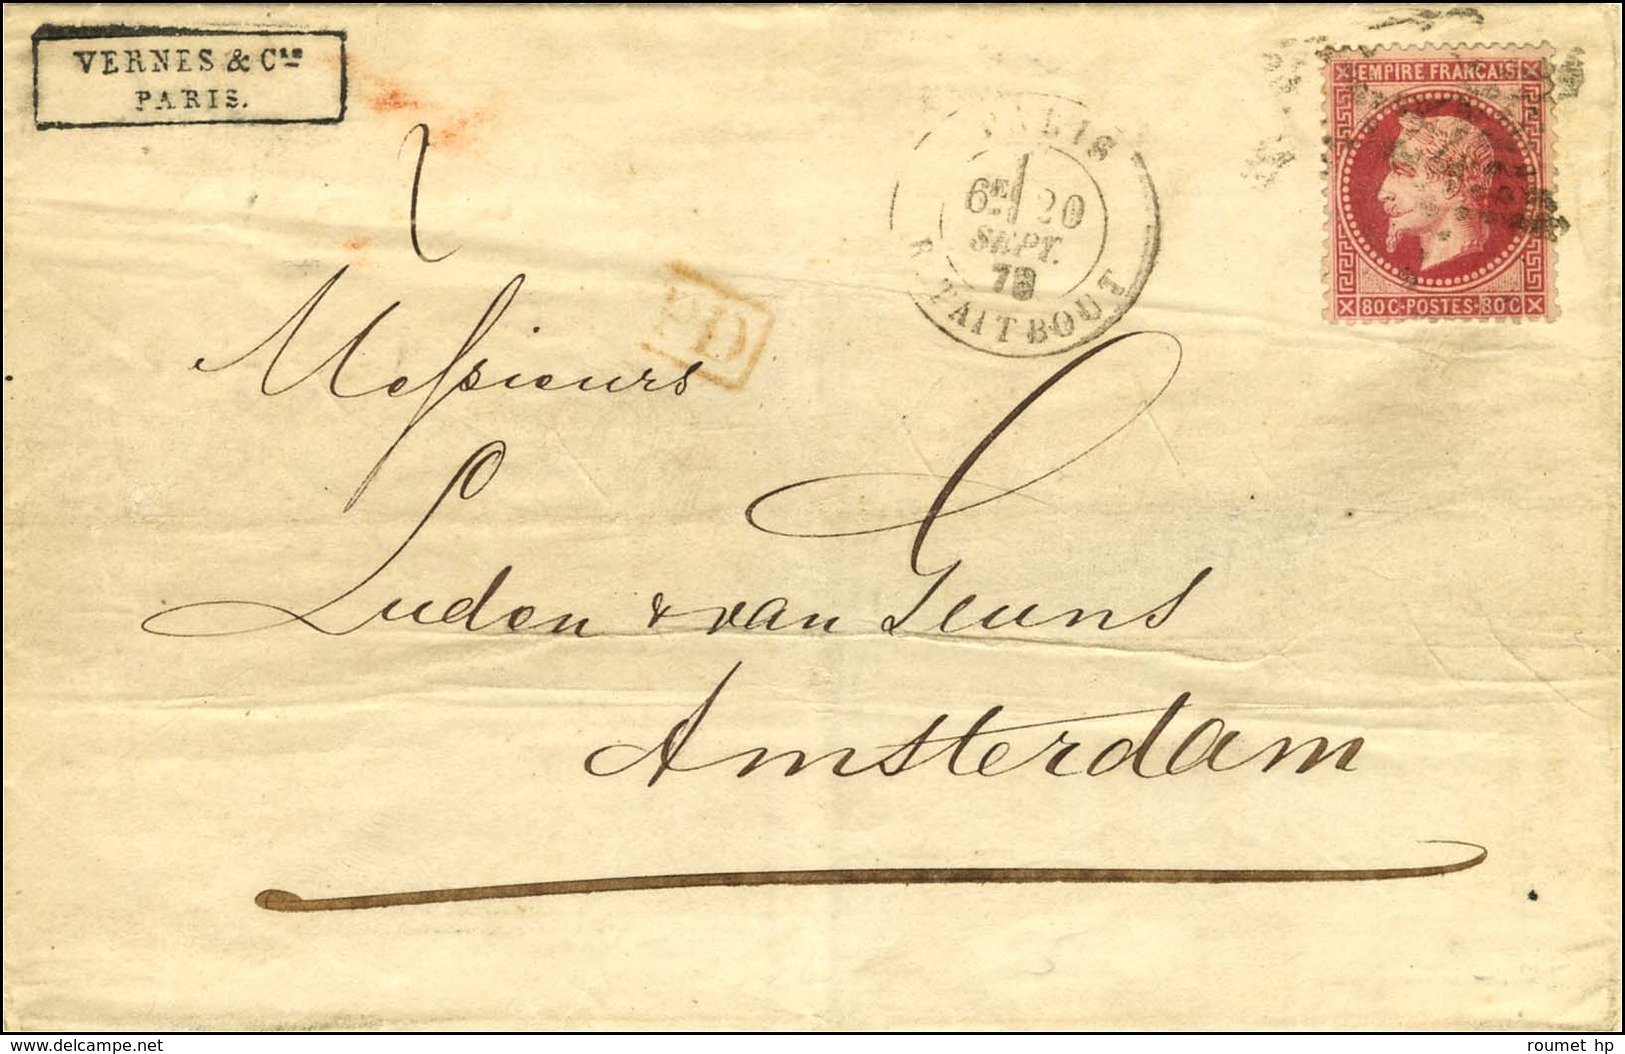 VERNES & Cie
PARIS.
EMPIRE FRANÇAIS
80C·POSTES·80C
PARIS
6E 20
SEPT.
70
R. TAITBOUT
PD
Messieurs
Luden & van Geuns
Amsterdam
delcampe.net
roumet hp